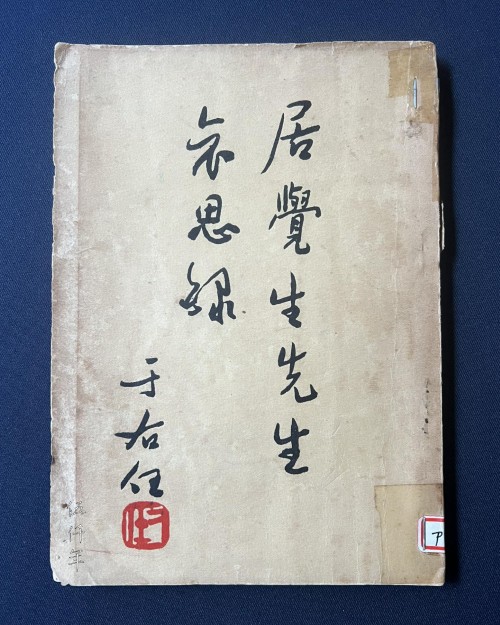 居覺生先生
哀思錄
于右任